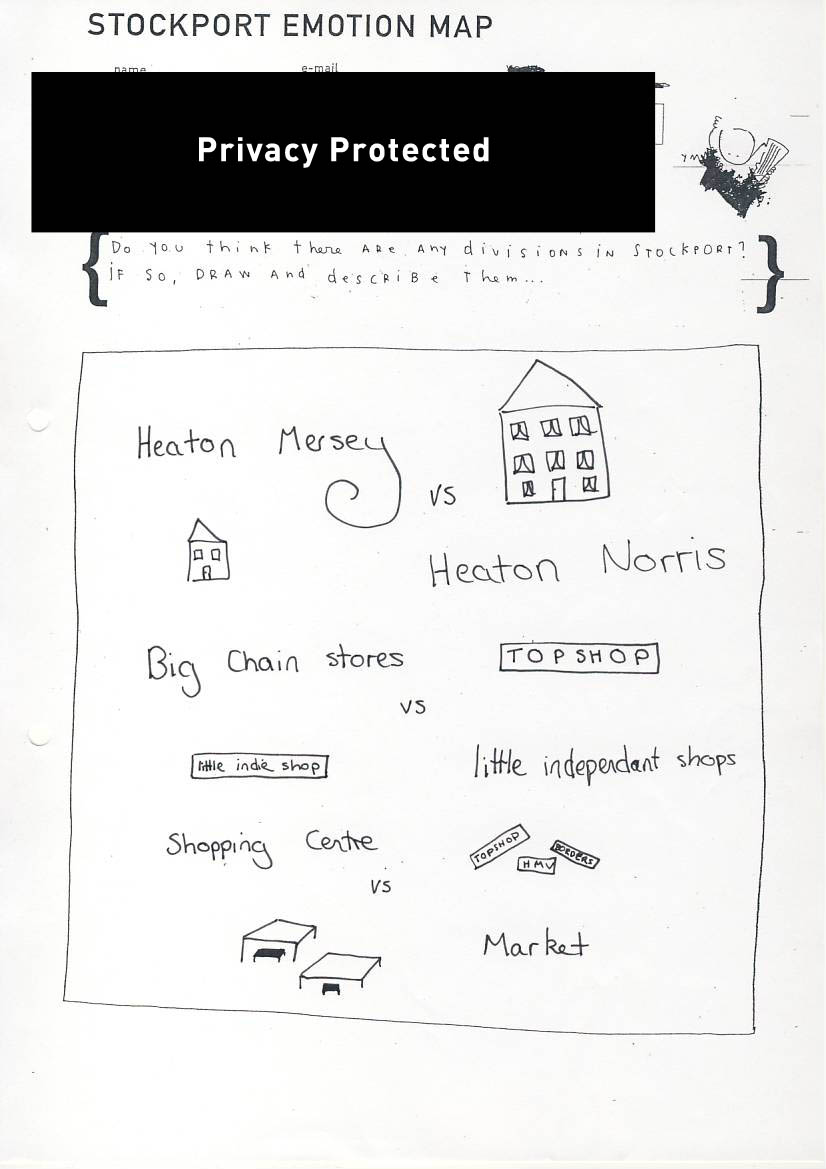 STOCKPORT EMOTION MAP
name e-mail
Privacy Protected
Do you think there ARe Any divisions in STOCKPORT?
IF SO, DRAW And describe Them...
Heaton Mersey
vs
Heaton Norris
Big Chain stores TOPSHOP
vs
little indie shop little independant shops
Shopping Centre TOPSHOP HMV BORDERS
vs
Market